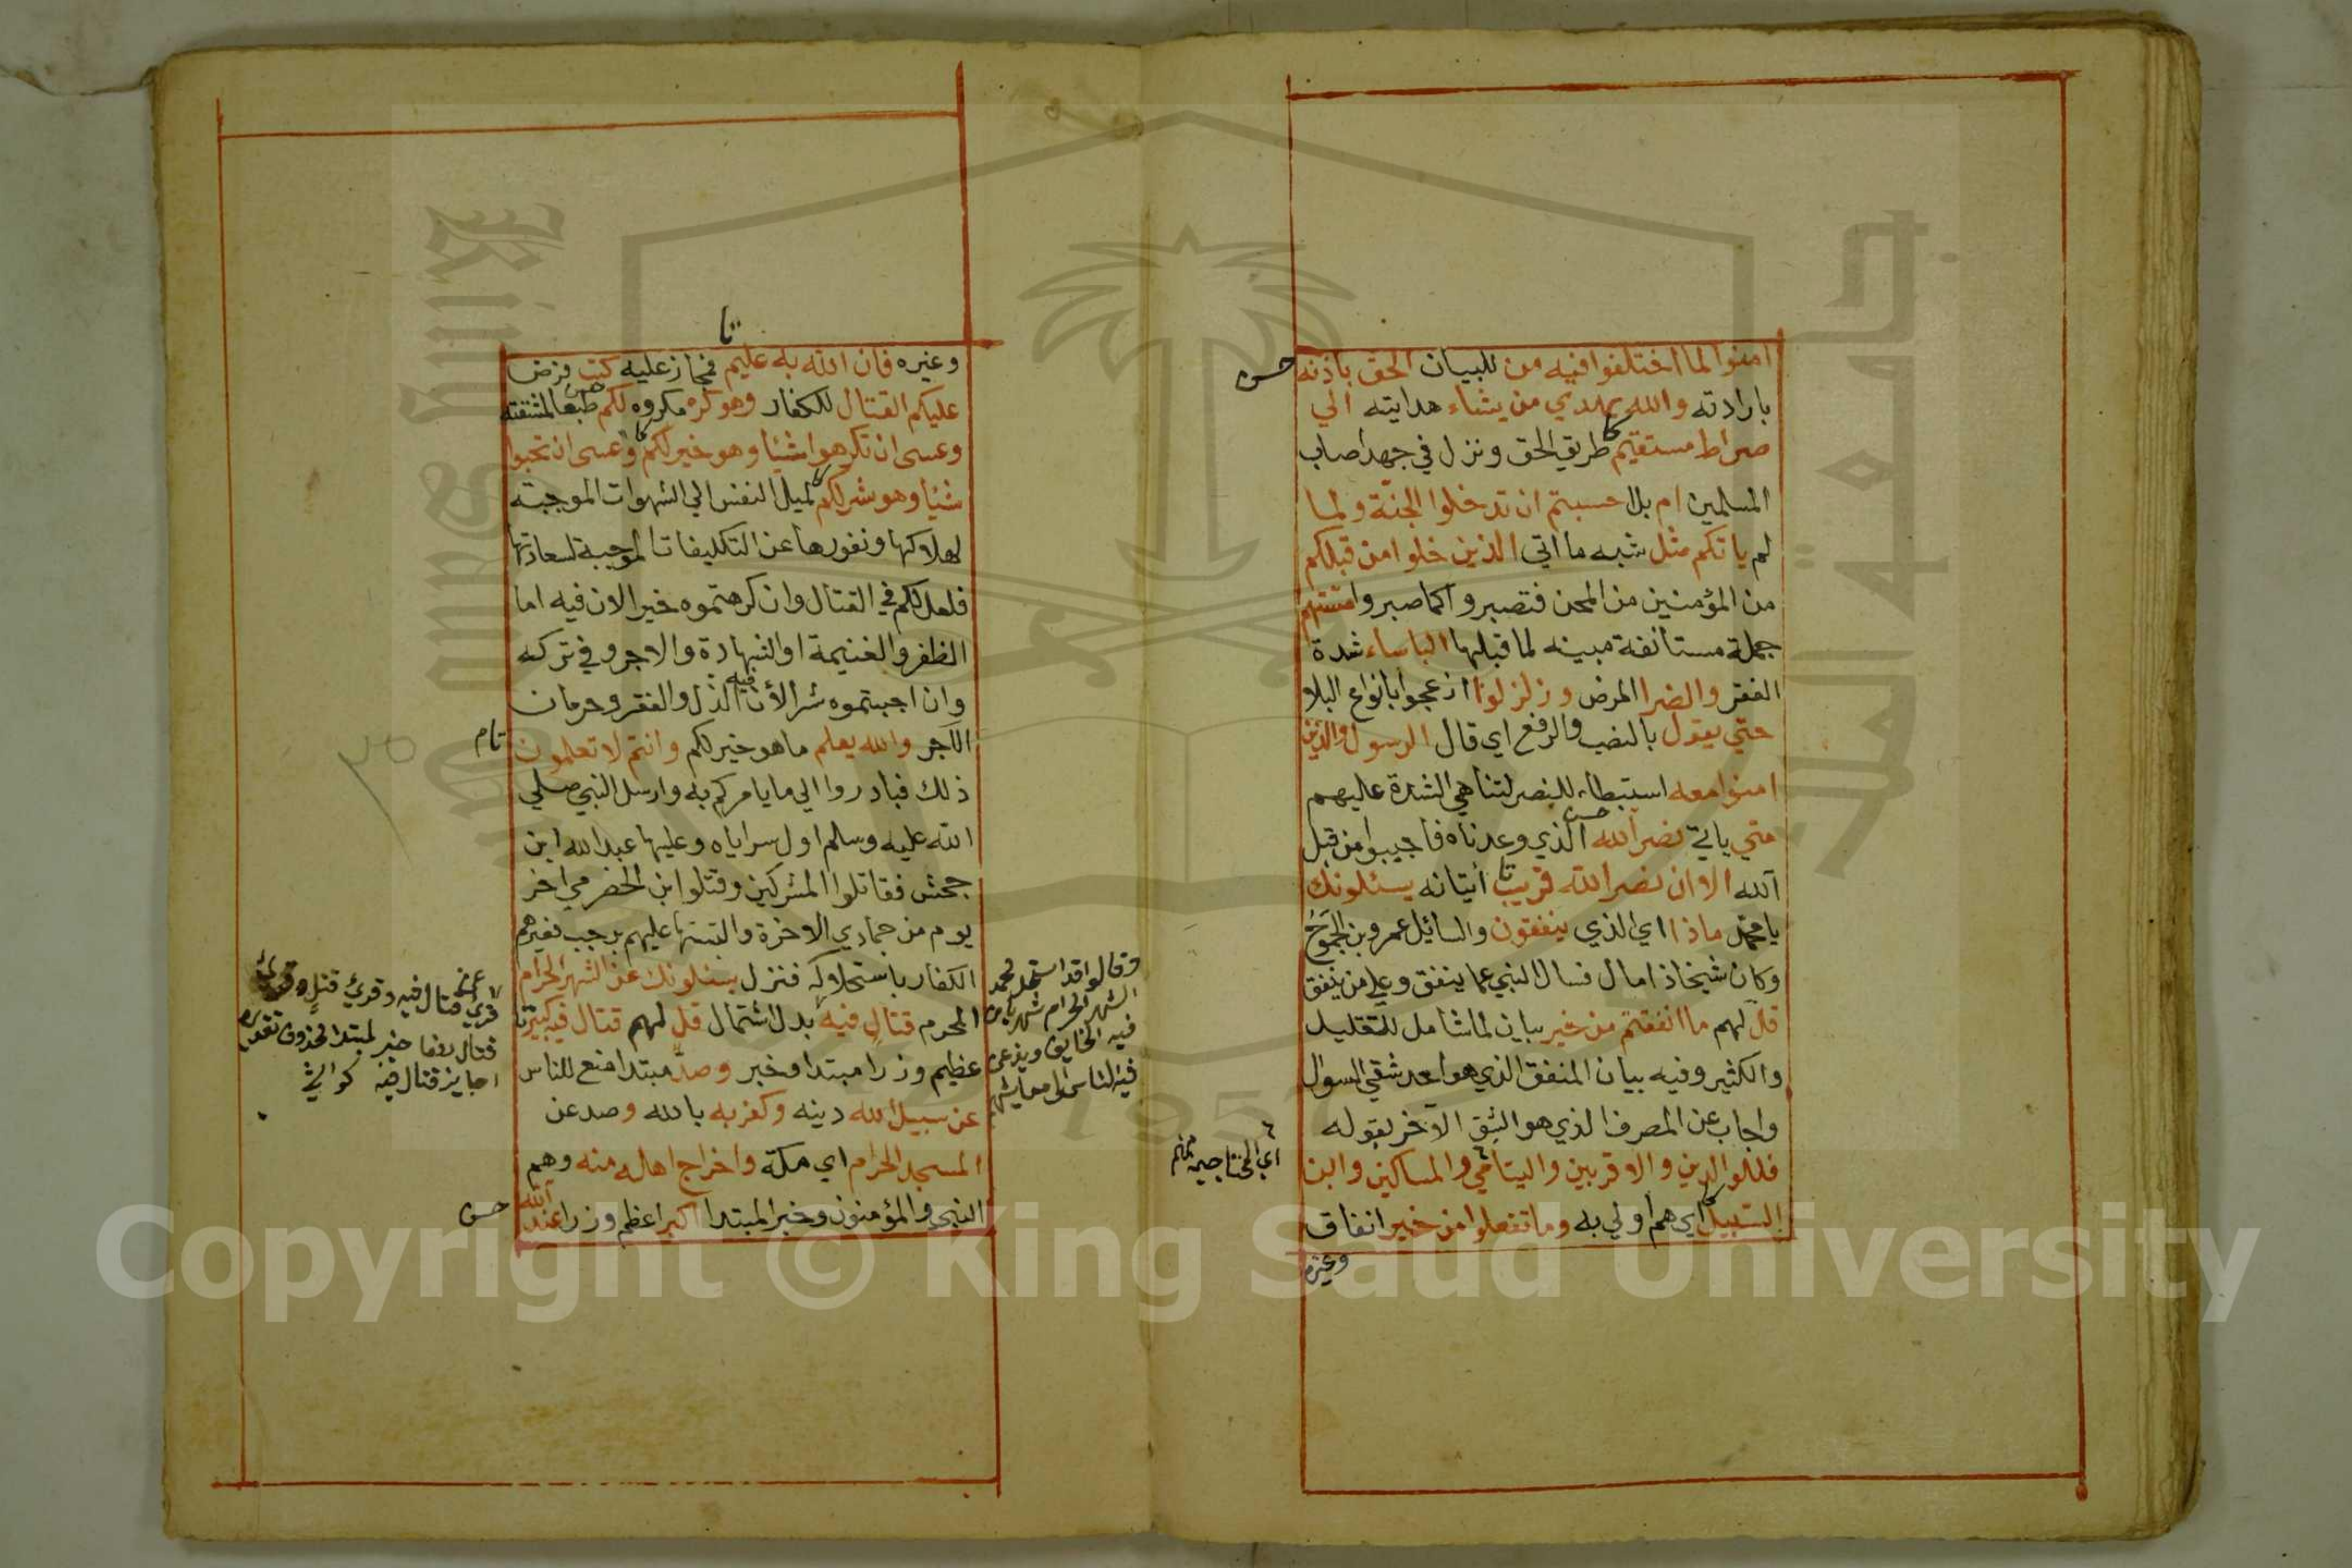 امنوا لما اختلفوا فيه من للبيان الحق باذنه
حسن
بارادته والله يهدي من يشاء هدايته الي
صراط مستقيم طريق الحق ونزل في جهد اصاب
المسلمين ام بل احسبتم ان تدخلوا الجنة ولما
لم ياتكم مثل شبه ما اتي الذين خلوا من قبلكم
من المؤمنين من المحن فتصبروا كما صبروا مستهم
جملة مستانفة مبينه لما قبلها الباساء شدة
الفقر والضرا المرض وزلزلوا ازعجوا بانواع البلا
حتي يقول بالنصب والرفع اي قال الرسول والذين
امنوا معه استبطاء للنصر لتناهي الشدة عليهم
متي ياتي نصر الله الذي وعدناه فاجيبوا من قبل
حسن
الله الا ان نصر الله قريب اتيانه يسئلونك
تا
يا محمد ماذا اي الذي ينفقون والسائل عمرو بن الجموح
وكان شيخا ذا مال فسال النبي عما ينفق وعلي من ينفق
قل لهم ما انفقتم من خير بيان لما شامل للتقليل
والكثير وفيه بيان المنفق الذي هو احد شقي السوال
واجاب عن المصرف الذي هو الشق الآخر بقوله
فللوالدين والاقربين واليتامي والمساكين وابن
اي المحتاجين منهم
السبيل اي هم اولي به وما تفعلوا من خير انفاق
وغيره
تا
وغيره فان الله به عليم فمجاز عليه كتب فرض
عليكم القتال للكفار وهو كره مكروه لكم طبعا لمشقته
حسن
وعسي ان تكرهوا شيئا وهو خير لكم وعسي ان تحبوا
شيئا وهو شر لكم لميل النفس الي الشهوات الموجبة
لهلاكها ونفورها عن التكليفات الموجبة لسعادتها
فلعل لكم في القتال وان كرهتموه خيرا لان فيه اما
الظفر والغنيمة او الشهادة والاجر وفي تركه
وان احببتموه شر الأن فيه الذل والفقر وحرمان
الآجر والله يعلم ما هو خير لكم وانتم لا تعلمون
تام
ذلك فبادروا الي ما يامركم به وارسل النبي صلي
الله عليه وسلم اول سراياه وعليها عبد الله ابن
جحش فقاتلوا المشركين وقتلوا ابن الحضرمي اخر
يوم من جمادي الاخرة والتبس عليهم برجب فعيرهم
الكفار باستحلاله فنزل يسئلونك عن الشهر الحرام
المحرم قتال فيه بدل اشتمال قل لهم قتال فيه كبير
عظيم وزرا مبتدا وخبر وصد مبتدا منع للناس
عن سبيل الله دينه وكفر به بالله وصد عن
المسجد الحرام اي مكة واخراج اهله منه وهم
النبي والمؤمنون وخبر المبتدا اكبر اعظم وزرا عند الله
حسن
وقالوا قد استحل محمد
الشهر الحرام شهر يامن
فيه الخايف ويذعر
فيه الناس الي معايشهم
قرئ عن قتال فيه وقرئ قتل وقرئ
قتال رفعا خبر لمبتدا محذوف تقديره
اجايز قتال فيه كواشي
٣٥
جامعة الملك سعود
King Saud University
1957
Copyright © King Saud University